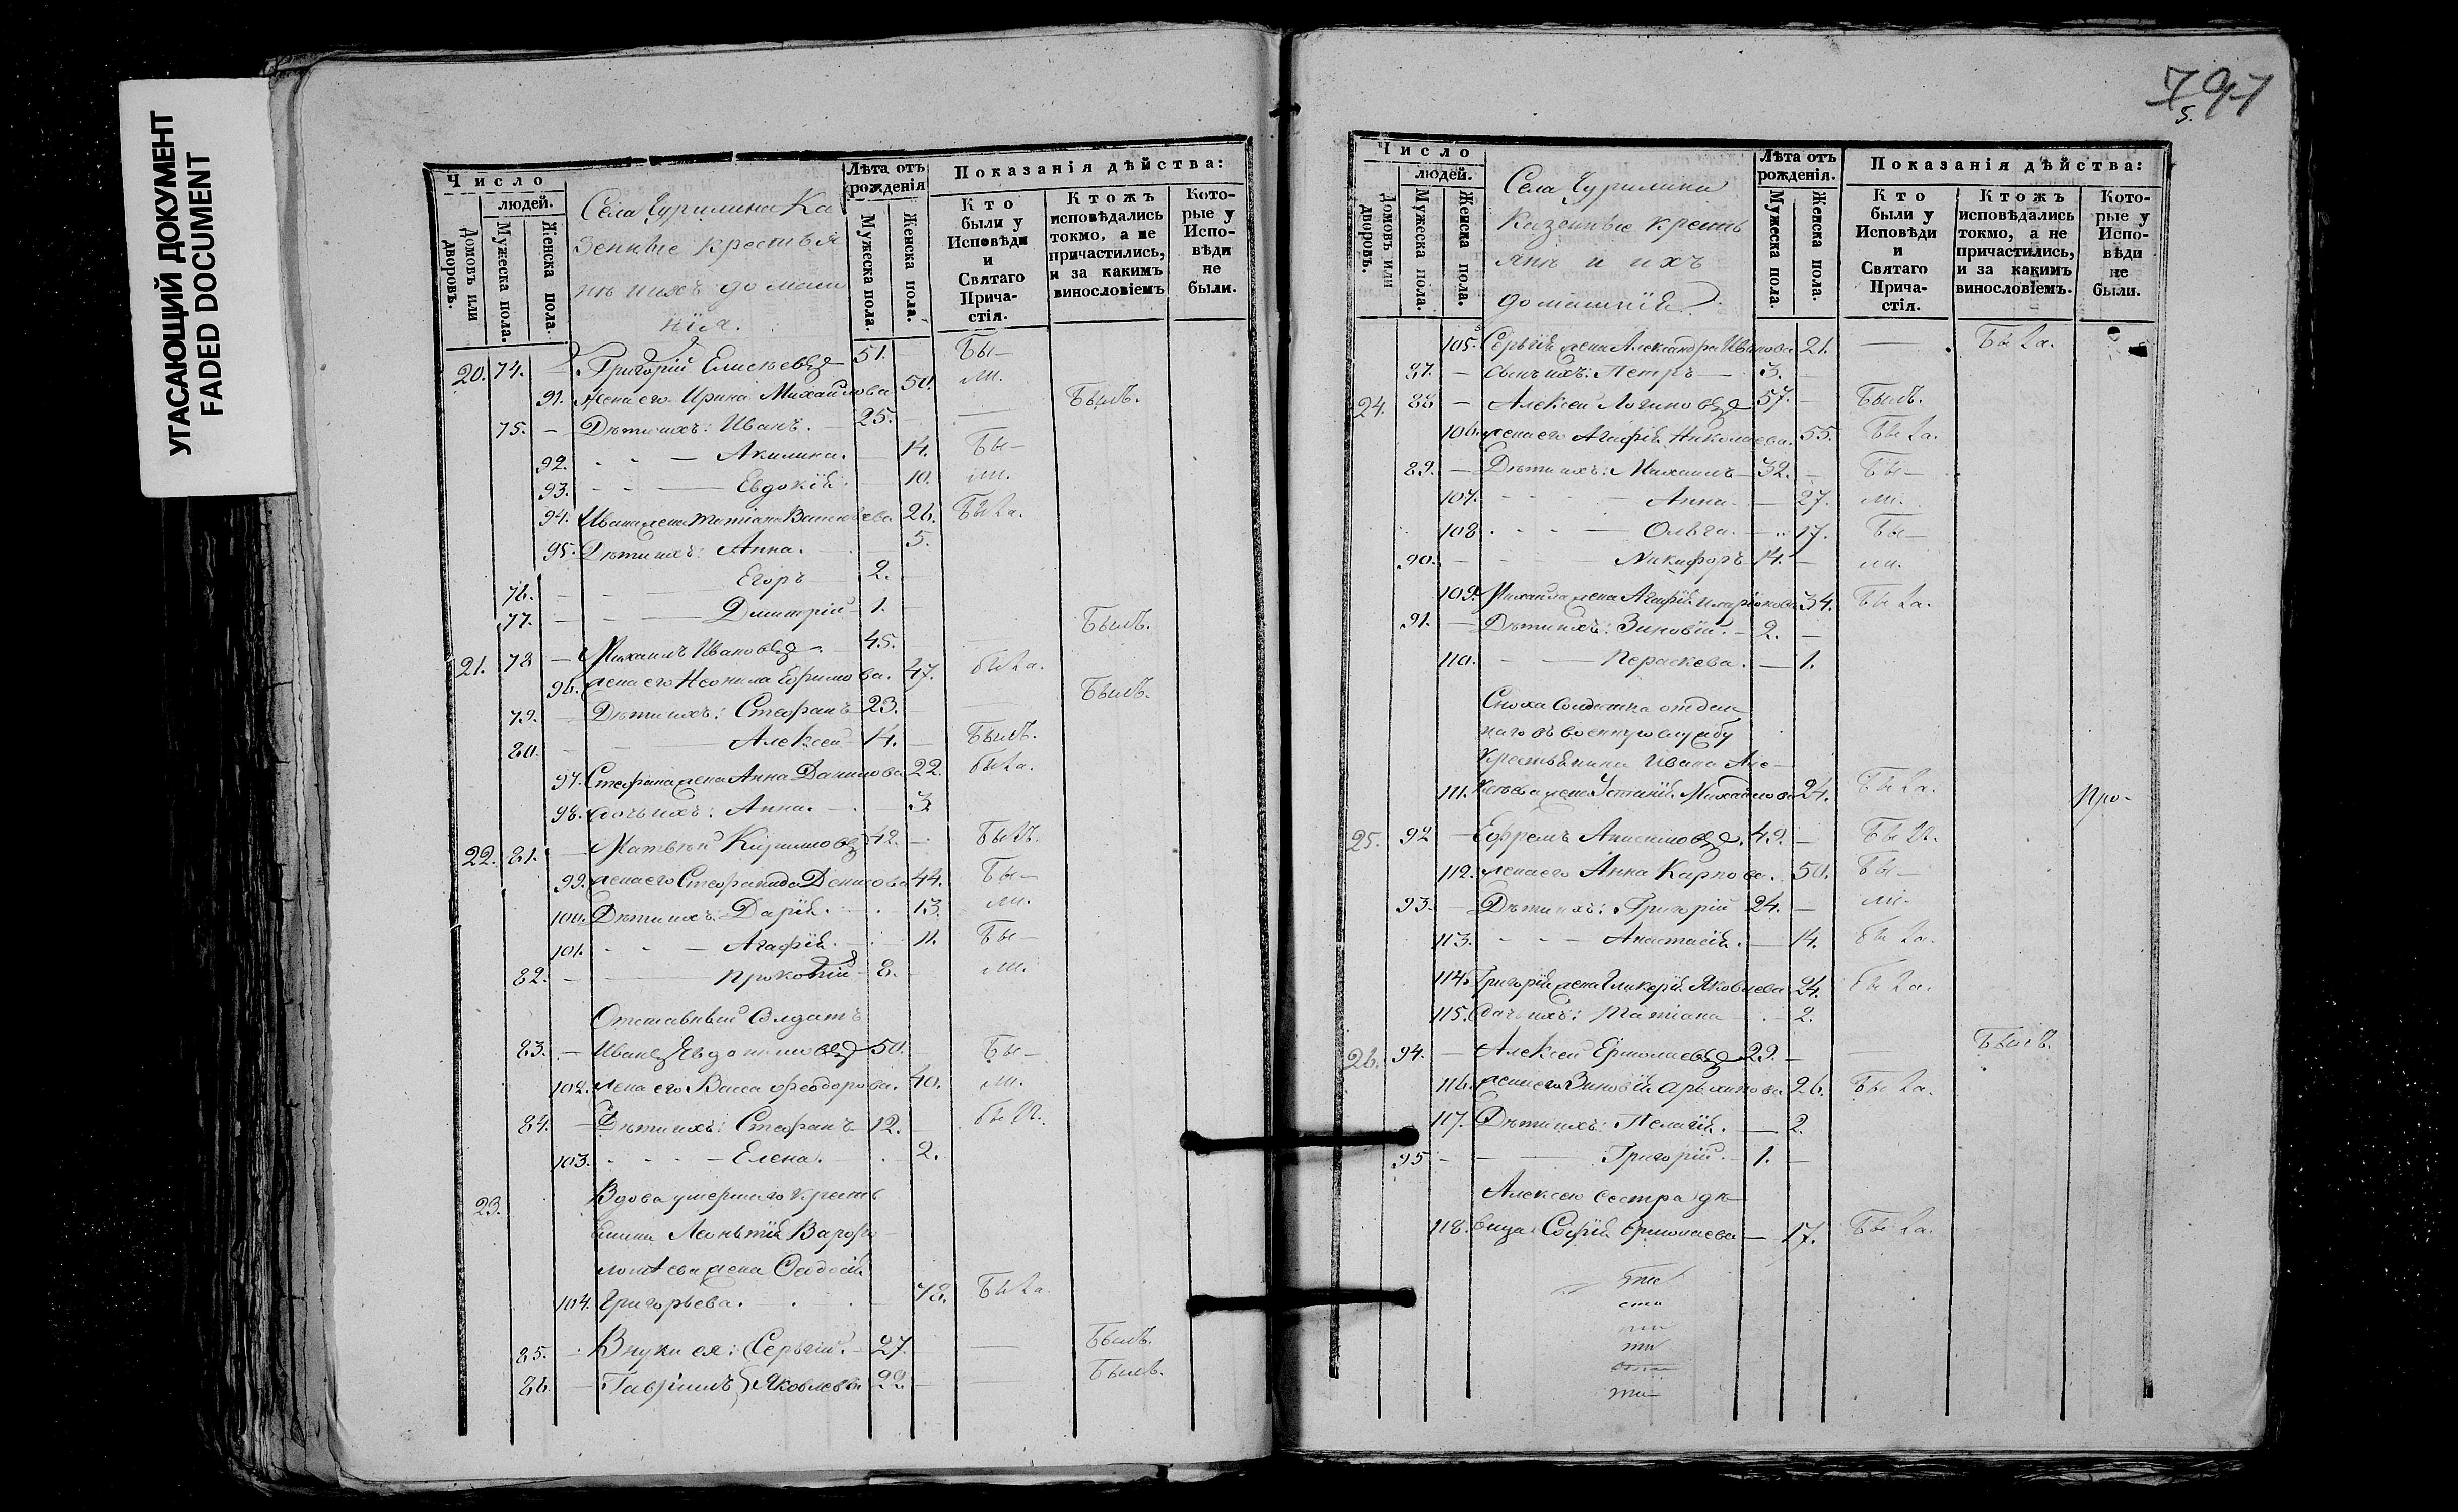 УГАСАЮЩИЙ ДОКУМЕНТ
FADED DOCUMENT
Число
людей.
Домовъ или дворовъ.
Мужеска пола.
Женска пола.
Села Чурилина Ка
зенные крестья
не и ихъ домаш
нія.
Лѣта отъ рожденія
Мужеска пола.
Женска пола.
Показанія дѣйства:
Кто были у Исповѣди и Святаго Прича-стія.
Ктожъ исповѣдались токмо, а не причастились, и за какимъ винословіемъ
Кото-рые у Испо-вѣди не были.
20. 74. Григорій Елисѣевъ 51. Бы-
91. Жена его Ирина Михайлова 50. ли.
75. — Дѣти ихъ: Иванъ. 25. — Былъ.
92. - - — Акилина. 14. Бы-
93. - - — Евдокія. 10. ли.
94. Ивана жена Татіана Васильева 26. Была.
95. Дѣти ихъ: Анна. 5.
76. — Егоръ 2.
77. — Димитрій 1.
21. 78 — Михаилъ Ивановъ 45. — Былъ.
96. жена его Неонила Ефимова. 47. была.
79. — Дѣти ихъ: Стефанъ 23. — Былъ.
80. — Алексей 14. Былъ.
97. Стефана жена Анна Данилова 22. была.
98. дочь ихъ: Анна. 3
22. 81. — Матвѣй Кириловъ 42. — Былъ.
99. жена его Стефанида Денисова 44. Бы-
100. Дѣти ихъ: Дарія. 13. ли.
101. - - — Агафія. 11. Бы-
82. — Прокопій 8. ли.
Отставный Солдатъ
83. — Иванъ Евдокимовъ 50. Бы-
102. жена его Васса Феодорова. 40. ли.
84. — Дѣти ихъ: Стефанъ 12. былъ.
103. - - - Елена. 2.
23. Вдова умершаго кресть
янина Леонтія Варфо-
ломѣева жена Феодосія
104. Григорьева. 73. Была
85. Внуки ея: Сергій. 27. — Былъ.
86. — Гавріилъ Яковлевы 22 — Былъ.
797
5.
Число
людей.
Домовъ или дворовъ.
Мужеска пола.
Женска пола.
Села Чурилина
Казенные кресть
яне и ихъ
домашніе.
Лѣта отъ рожденія.
Мужеска пола.
Женска пола.
Показанія дѣйства:
Кто были у Исповѣди и Святаго Прича-стія.
Ктожъ исповѣдались токмо, а не причастились, и за какимъ винословіемъ.
Кото-рые у Испо-вѣди не были.
105. Сергія жена Александра Иванова 21. — Была.
87. — Сынъ ихъ: Петръ — 3.
24. 88 — Алексей Логиновъ 57. — Былъ.
106. жена его Агафія Николаева. 55. Была.
89. — Дѣти ихъ: Михаилъ 32. — Бы-
107. - - — Анна — 27. ли.
108 - - — Ольга. 17. Бы-
90. — Никифоръ 14. — ли.
109. Михаила жена Агафія Иларіонова 34. Была.
91. — Дѣти ихъ: Зиновій. 2. —
110. — Параскева. — 1.
Сноха Солдатка отдан
наго въ военную службу
Крестьянина Ивана Але-
111. ксѣева жена Устинія Михайлова 24. Была. Про-
25. 92 — Ефремъ Анисимовъ. 49. — Былъ.
112. жена его Анна Карпова. 50. Бы-
93. — Дѣти ихъ: Григорій 24. — ли.
113. - - — Анастасія. — 14. была.
114. Григорія жена Гликерія Яковлева 24. была.
115. дочь ихъ: Татіана 2.
26. 94. — Алексей Ермолаевъ 29. — — Былъ.
116. жена его Зиновія Архипова 26. Была.
117. Дѣти ихъ: Пелагія. — 2.
95 — Григорій. 1. —
Алексею сестра дѣ-
118. вица Софія Ермолаева — 17. Была.